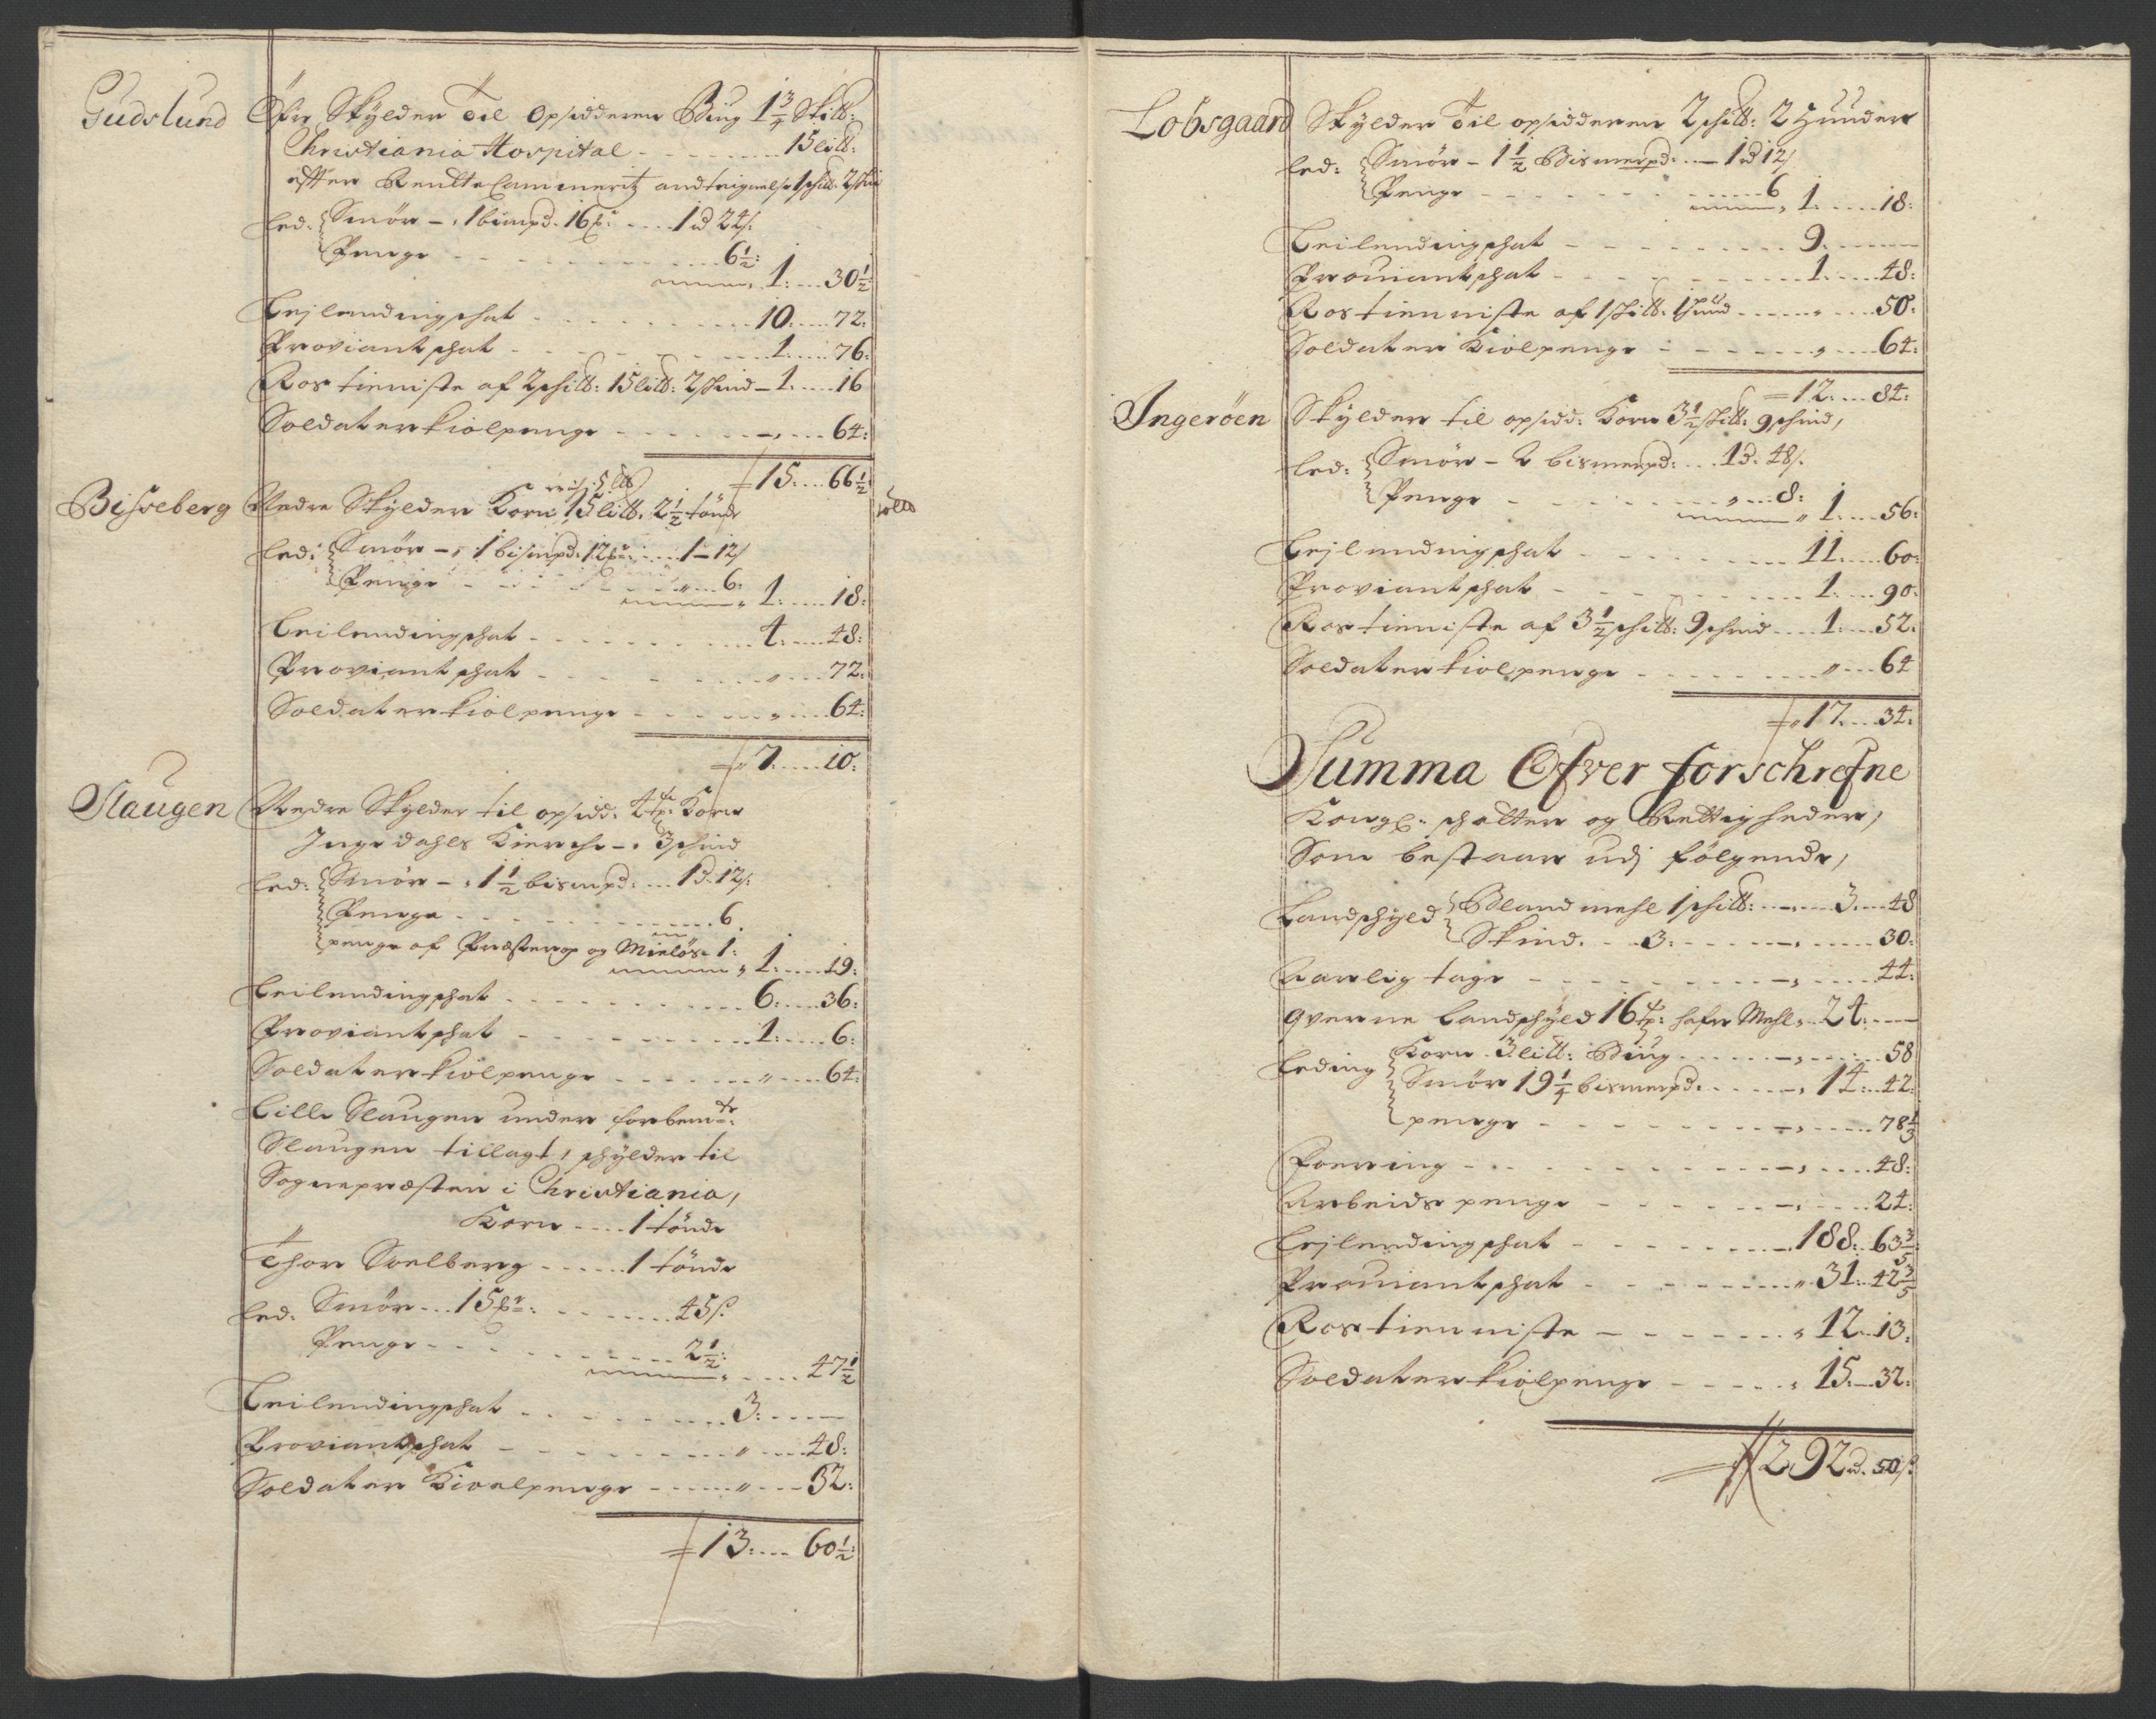 Gudslund Øfre Skylder Til Opsidderen Biug 1 3/4 Skitt:
Christiania Hospital - - - - 15 litt:
effter RendteCammeritz andteignelse 1 schitt: 2 schin
led: Smör - 1 bismpd. 16 - - 1 d 24 s:
Penge - - - - 6 1/2:
1: - - 30 1/2
Lejlendingschat - - - - 10: - - 72:
Proviantschat - - - - 1: - - 76:
Ros tieniste af 2 schitt: 15 litt: 2 skind - 1: - - 16
Soldater kiolpenge - - - - 64:
15 - - 66 1/2
Bisseberg Nedre Skylder Korn 15 litt. 2 1/2 tönde
led: Smör - 1 bismpd. 12 - - 1 - 12 s
Penge - - - - 6:
1: - - 18:
Leilendingschat - - - - 4: - - 48:
Proviantschat - - - - 72:
Soldater kiolpenge - - - - 64:
7: - - 10:
Slaugen Nedre Skylder til opsidd: 4 tr: Korn
Ingedahls Kierche - 3 schind
led: Smör - 1 1/2 bismpd: - - 1 d. 12 s:
Penge - - - - 6.
penge af Præsterop og Mielös. 1:
1: - - 19:
Leilendingschat - - - - 6: - - 36:
Proviantschat - - - - 1: - - 6:
Soldater kiolpenge - - - - 64:
Lille Slaugen under forbem te:
Slaugen tillagt, schylder til
Sognepræsten i Christiania,
Korn - - 1 tönde
Thor Soelberg - - - 1 tönde
led: Smör - - 15 - - 45 s.
Penge - - - - 2 1/2:
47 1/2
Leilendingschat - - - - 3: - -
Proviantschat - - - - 48:
Soldater Kioelpenge - - - - 32:
13: - - 60 1/2:
Lobsgaard Skylder Til opsidderen 2 schitt: 2 Hunder
led: Smör - 1 1/2 Bismerpd: - - 1 d 12 s
Penge - - - - 6
1: - - 18:
Leilendingschat - - - - 9: - -
Prouiantschat - - - - 1: - - 48:
Ros tienniste af 1 skitt: 1 Hund - - - - 50:
Soldater Kiolpenge - - - - 64:
12: - - 84:
Ingeröen Skylder til opsidd: Korn 3 1/2 skitt: 9 schind,
led: Smör - 2 bismerpd: - - 1 d: 48 s.
Penge - - - - 8:
1: - - 56:
Lejlendingschat - - - - 11: - - 60:
Proviantschat - - - - 1: - - 90:
Rostieniste af 3 1/2 schitt: 9 schind - - 1: - - 52:
Soldater kiolpenge - - - - 64
17: - - 34:
Summa Ofver forschrefne
Kongl: schatter og Rettigheder,
Som bestaar udj fölgende,
Landschyld Blandmehl 1 schitt: - - 3: - - 48
Skind. - - 3: - - - - 30:
Aarlig tage - - - - 44:
Qverne Landschyld 16 tr: hafre Mehl - 24: - -
Leding Korn 3 litt: Biug - - - - 58
Smör 19 1/4 bismerpd: - - 14: - - 42:
penge - - - - 78 1/3
Foering - - - - 48:
Arbeids penge - - - - 24:
Lejlendingschat - - - - 188: - 63 3/5:
Prouiantschat - - - - 31: - 42 3/5
Ros tienniste - - - - 12 - - 13:
Soldater kiolpenge - - - - 15: - 32:
292 d. 50 s: